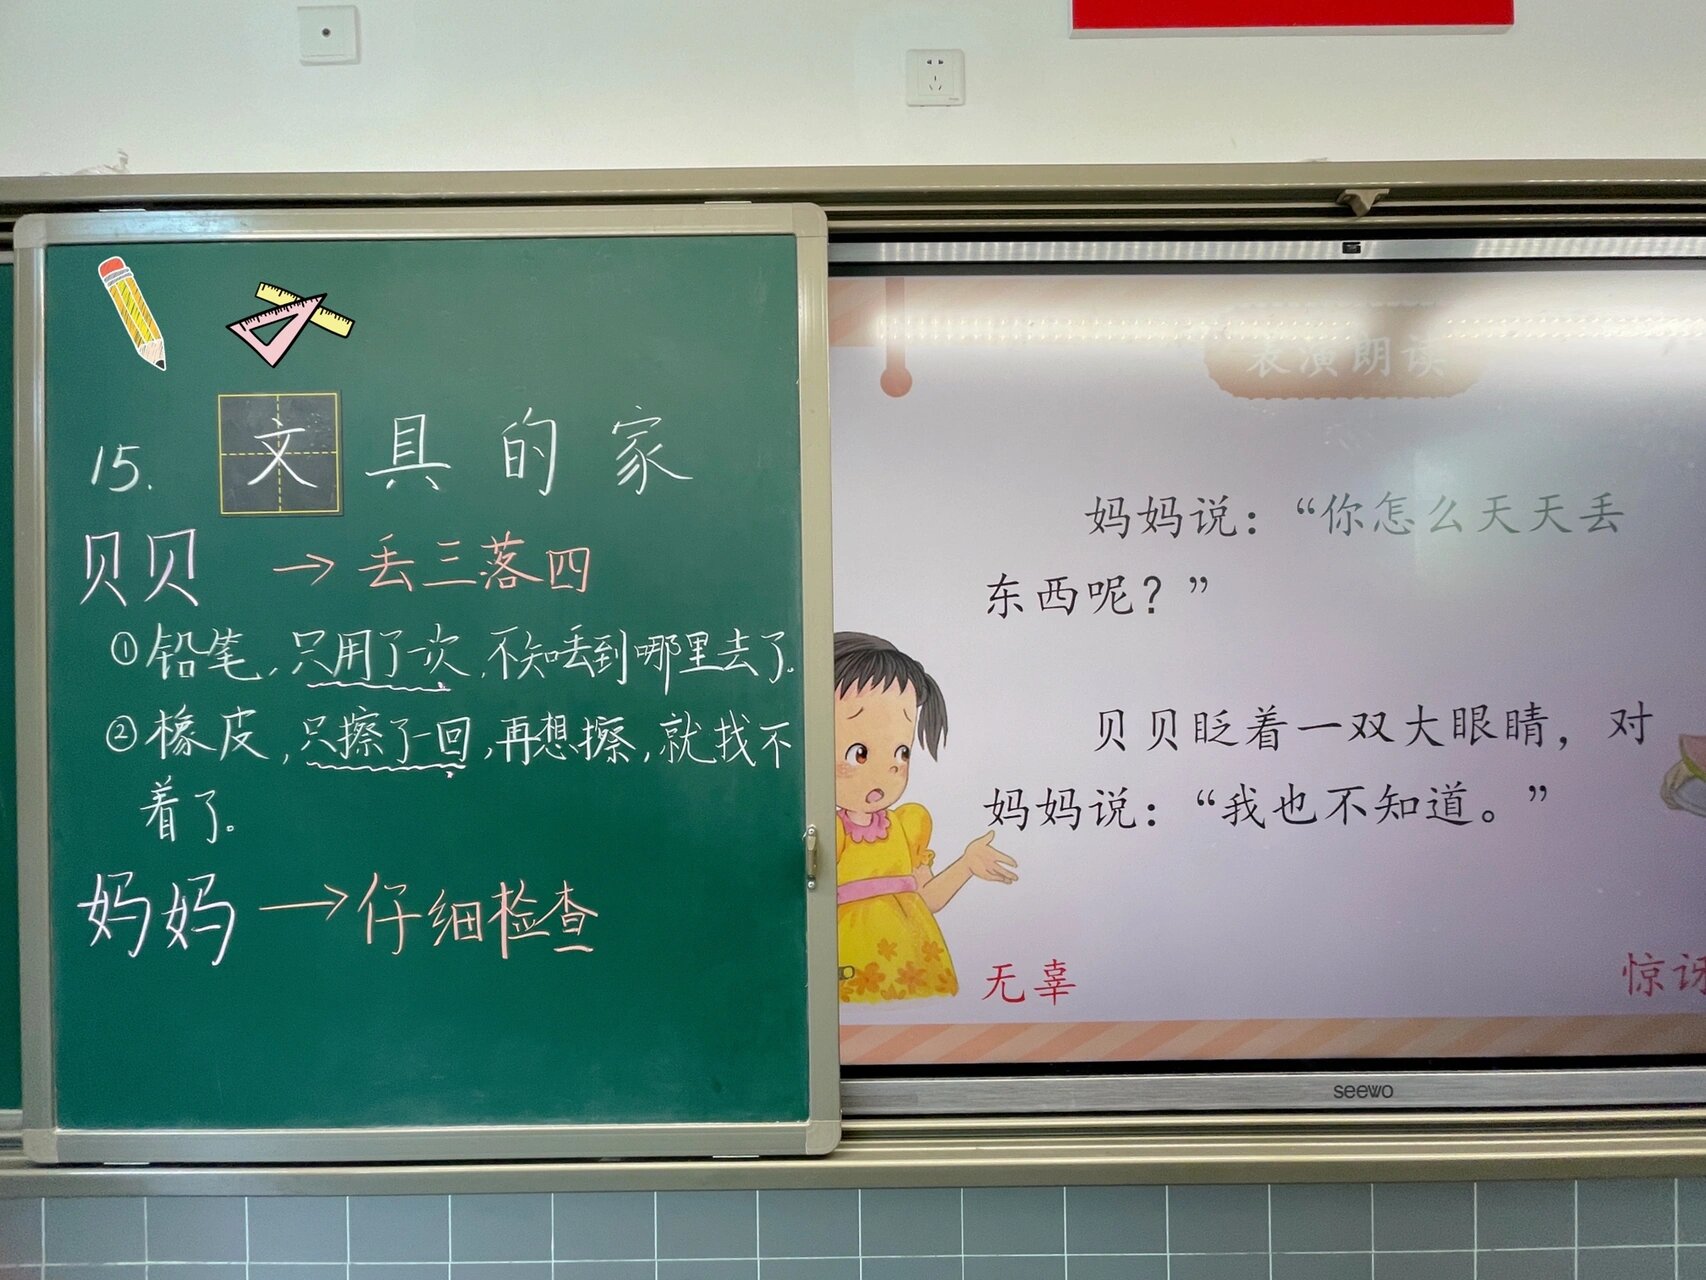 15. 文具的家
贝贝 → 丢三落四
①铅笔，只用了一次，不知丢到哪里去了。
②橡皮，只擦了一回，再想擦，就找不
着了。
妈妈 → 仔细检查
表演朗读
妈妈说：“你怎么天天丢
东西呢？”
贝贝眨着一双大眼睛，对
妈妈说：“我也不知道。”
无辜
惊讶
seewo